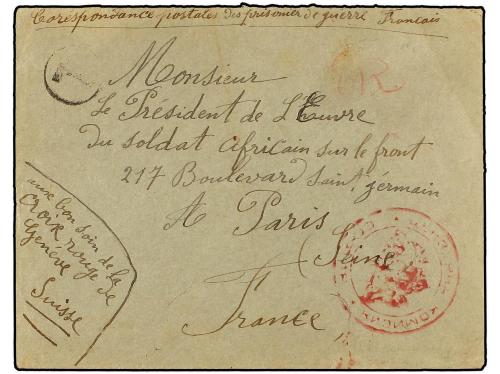 Corespondance postales des prisonier de guerre Francais
T
Monsieur
Le Président de L'Euvre
du soldat africain sur le front
217 Boulevard saint, jérmain
A Paris
(Seine
France
aux bon soin de la
Croix rouge de
Genève
Suisse